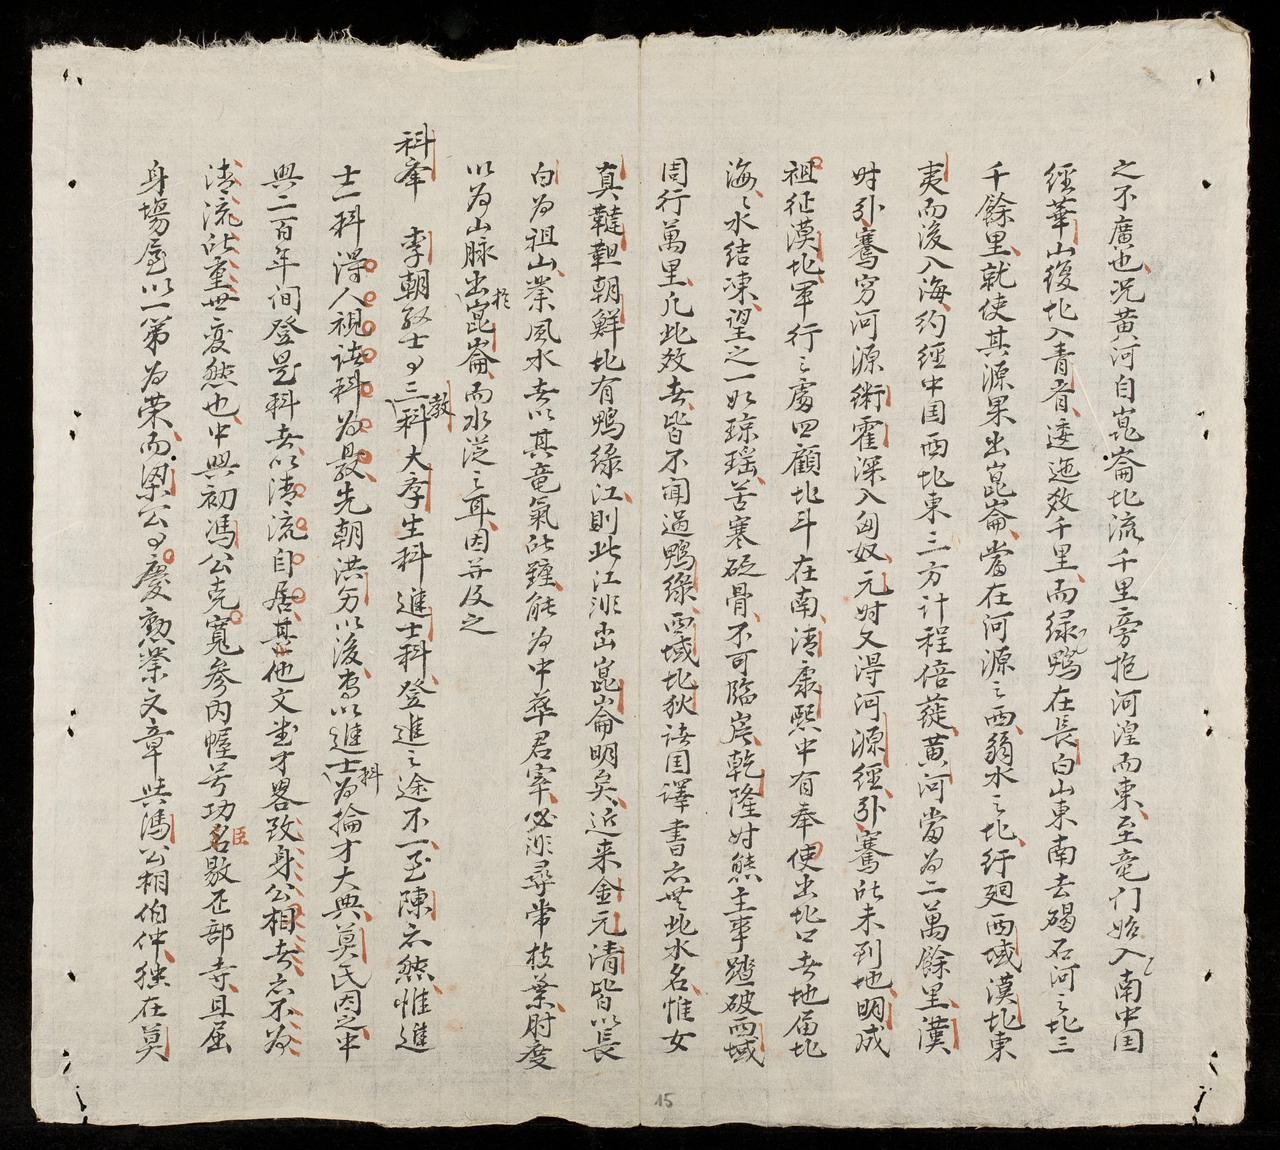 之不廣也况黄河自崑崙北流千里旁抱河湟而東至竜门始入南中国
經華山後北入青齊逶迤数千里而緑鴨在長白山東南去碣石河之北三
千餘里就使其源果出崑崙當在河源之西弱水之北行廻西域漠北東
夷而後入海約經中国西北東三方計程倍蓰黄河當为二萬餘里漢
时張騫穷河源衛霍深入匈奴元时又得河源經張騫所未到地明成
祖征漠北軍行之處回顧北斗在南清康熙中有奉使出北口者地届北
海之水结凍望之一如琼瑶苦寒砭骨不可臨岸乾隆时熊主事踏破西域
周行萬里凡此数者皆不闻過鴨緑西域北狄諸国譯書亦無此水名惟女
真韃靼朝鮮北有鴨緑江則此江非出崑崙明矣近来金元清皆以長
白为祖山業風水者以其竜氣所鍾能为中華君宰必非尋常枝葉肘度
以为山脉出於崑崙而水从之耳因并及之
科举　李朝取士有三教科大学生科進士科登進之途不一至陳亦然惟進
士一科得人視諸科为最先朝洪分以後專以進士科为掄才大典莫氏因之中
興二百年间登是科者以清流自居其他文武才畧致身公相者亦不为
清流所重世变然也中興初馮公克寬参内幄号功臣敭歴部寺且屈
身塲屋以一第为荣而恩公有慶勲業文章與馮公相伯仲独在莫
15